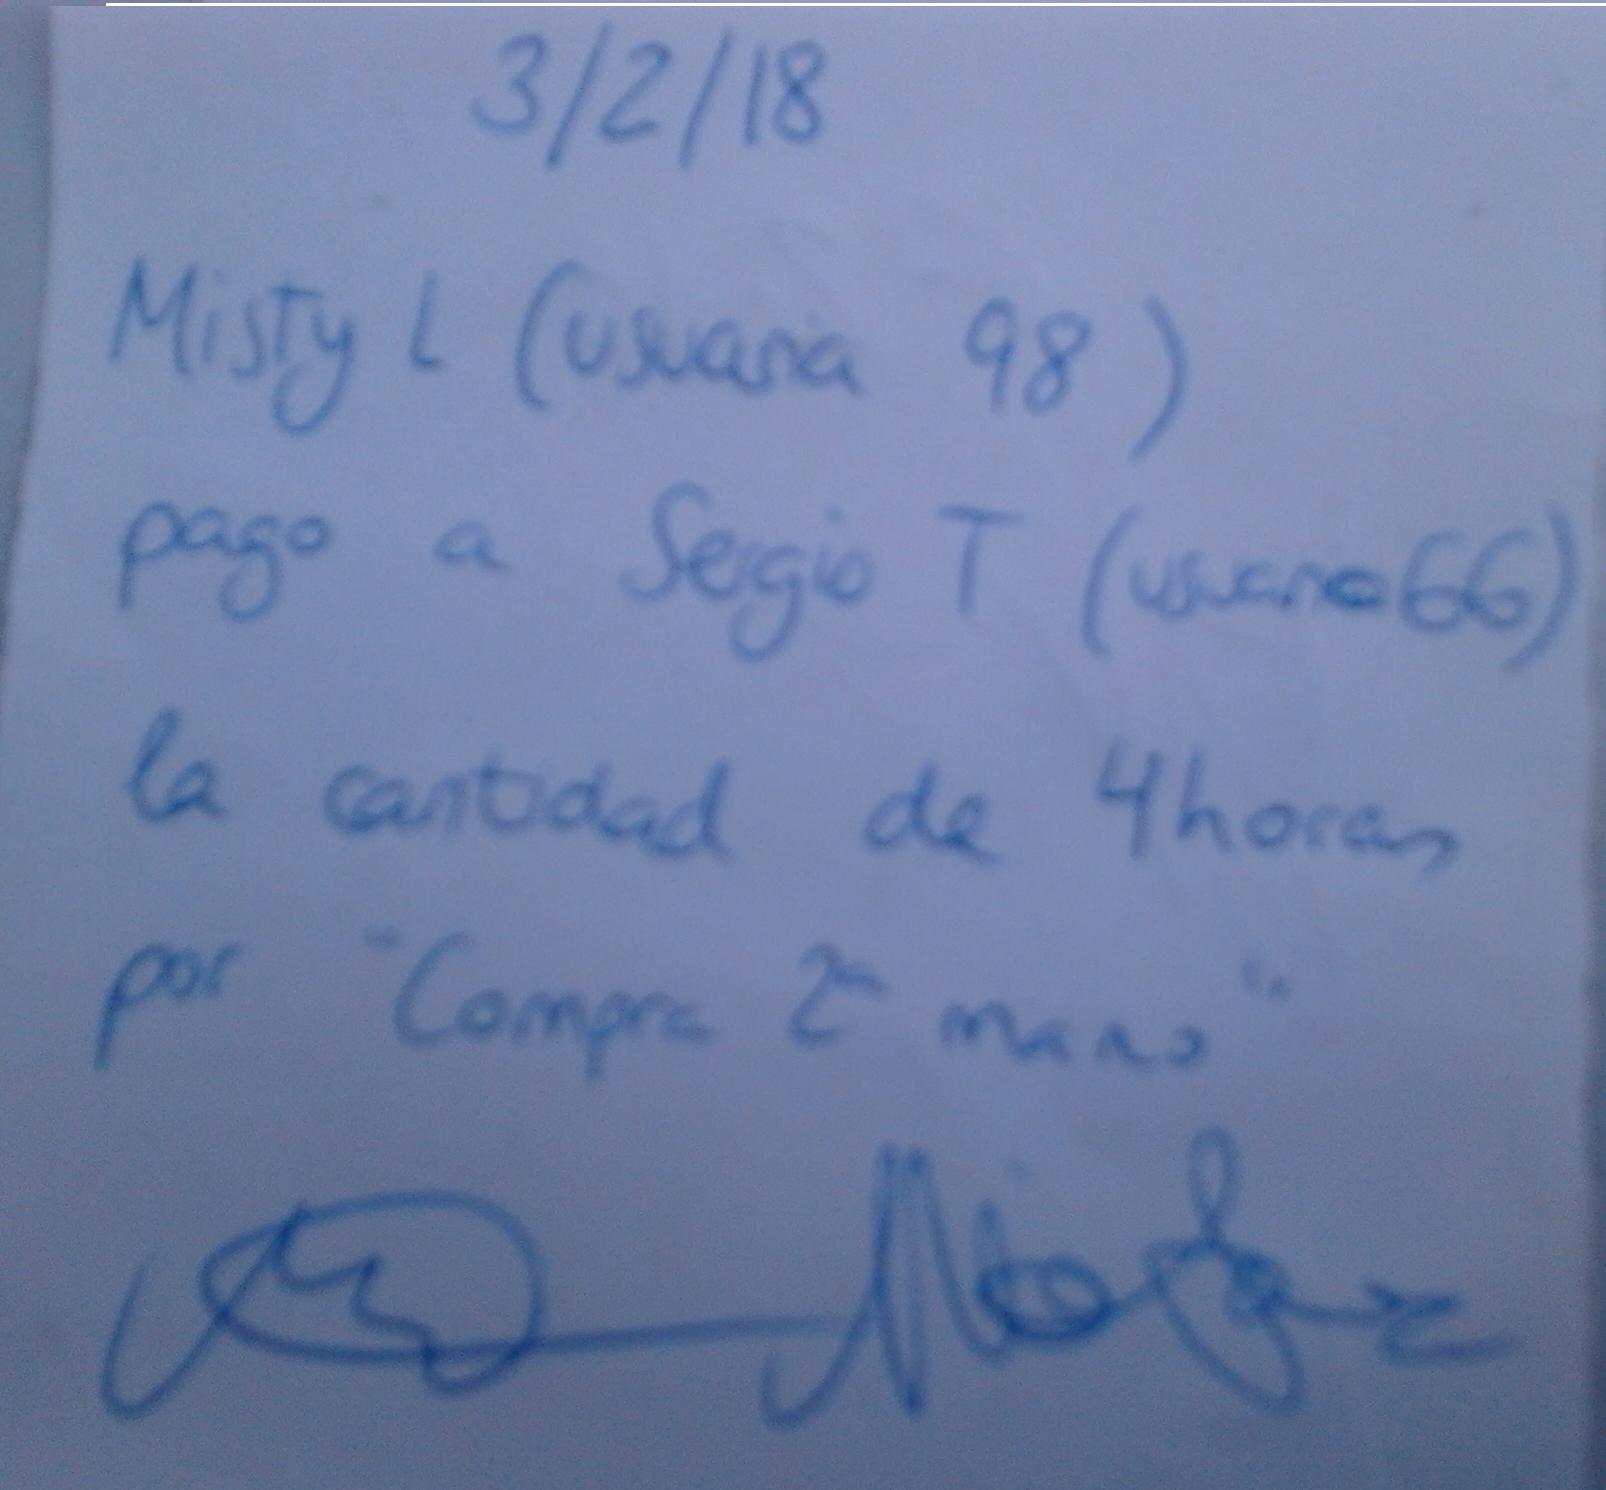 3/2/18
Misty L (usuaria 98)
pago a Sergio T (usuario 66)
la cantidad de 4 horas
por "Compra 2ª mano"